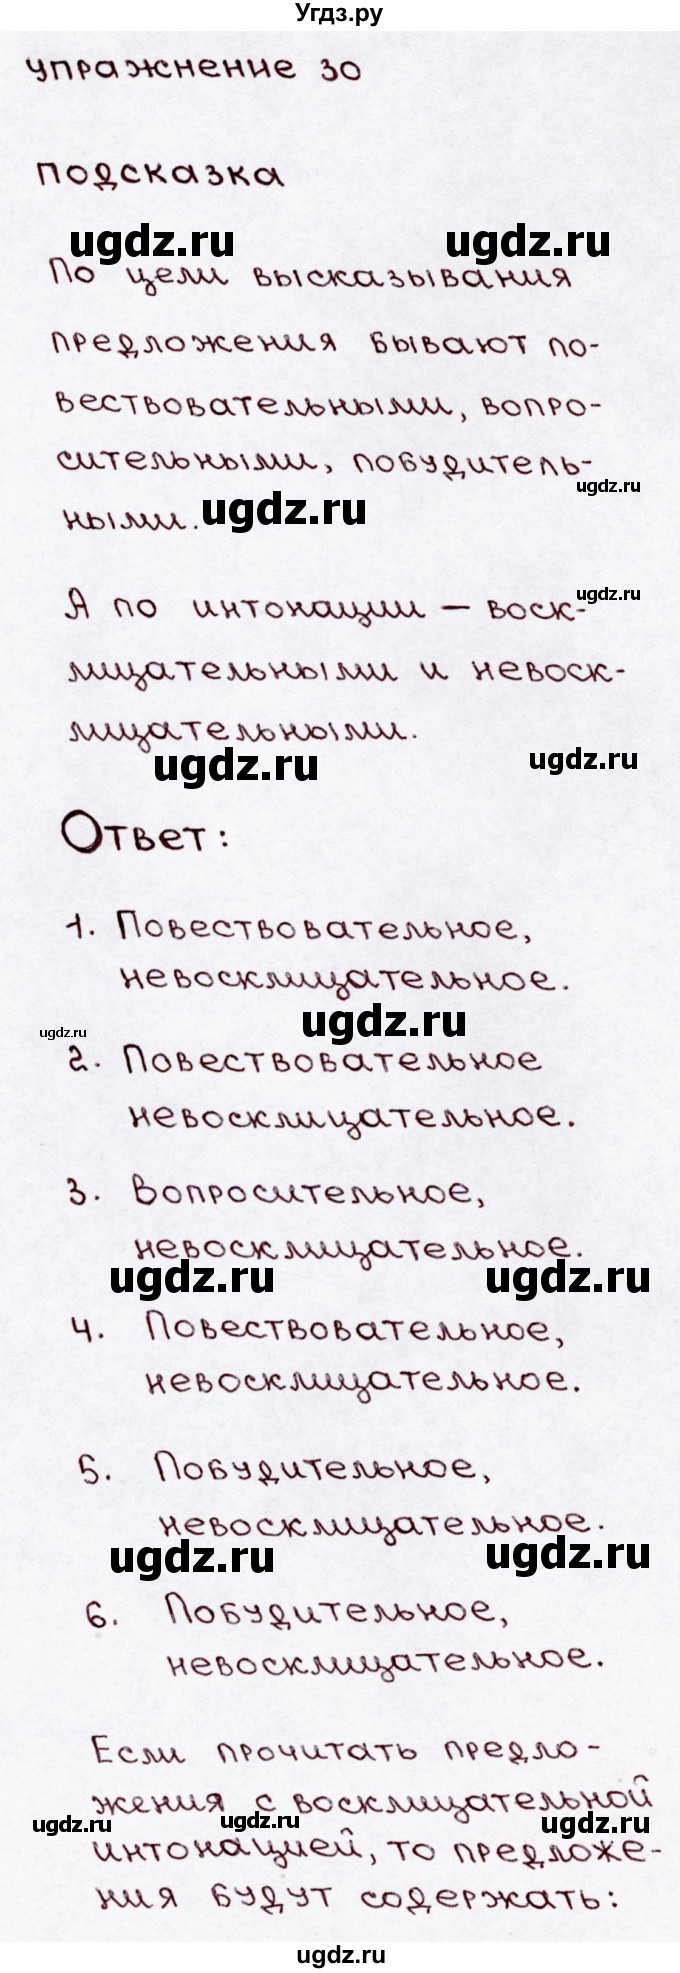 Угдз.ру
упражнение 30
подсказка
ugdz.ru ugdz.ru
По цели высказывания
предложения бывают по-
вествовательными, вопро-
сительными, побудитель-
ugdz.ru
ными. ugdz.ru
ugdz.ru
А по интонации – воск-
лицательными и невоск-
лицательными.
ugdz.ru ugdz.ru
Ответ:
1. Повествовательное,
невосклицательное.
ugdz.ru ugdz.ru
2. Повествовательное
невосклицательное.
3. Вопросительное,
невосклицательное.
ugdz.ru ugdz.ru
4. Повествовательное,
невосклицательное.
5. Побудительное,
невосклицательное.
ugdz.ru ugdz.ru
6. Побудительное,
невосклицательное.
Если прочитать предло-
жения с восклицательной
ugdz.ru ugdz.ru ugdz.ru
интонацией, то предложе-
ния будут содержать:
ugdz.ru